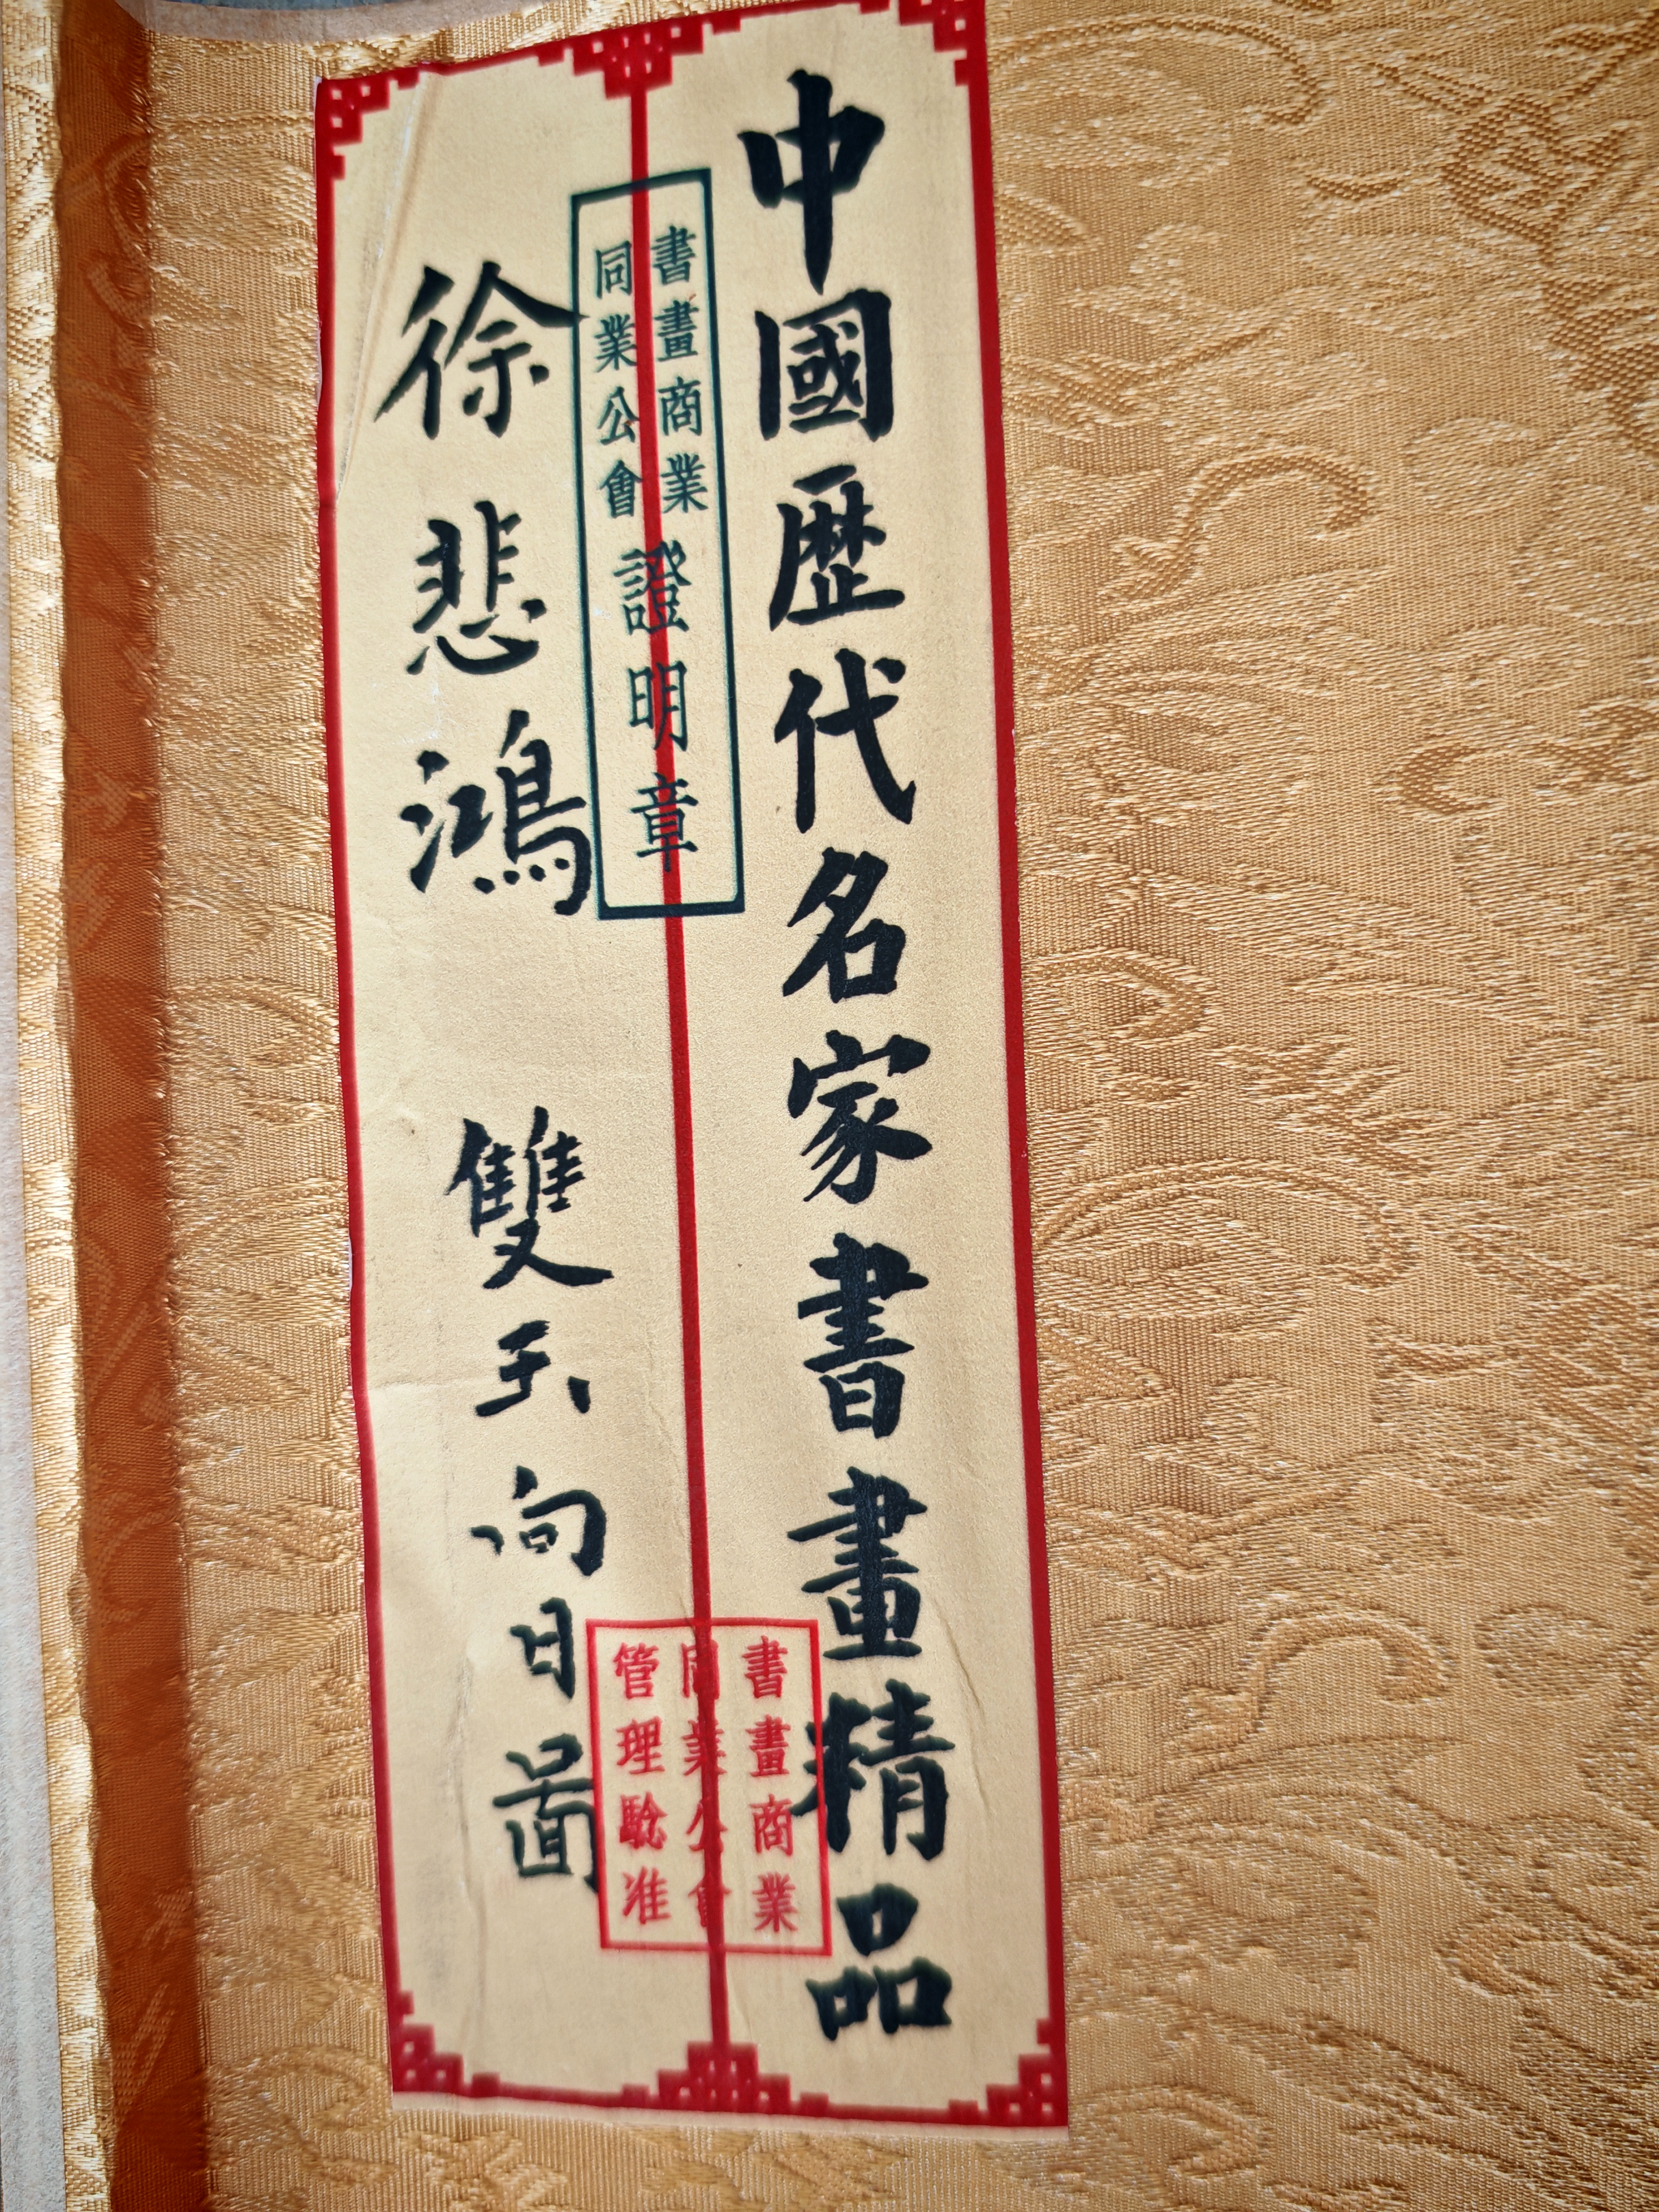 中國歷代名家書畫精品
書畫商業
同業公會
證明章
徐悲鴻 雙玉向日圖
書畫商業
同業公會
管理驗准